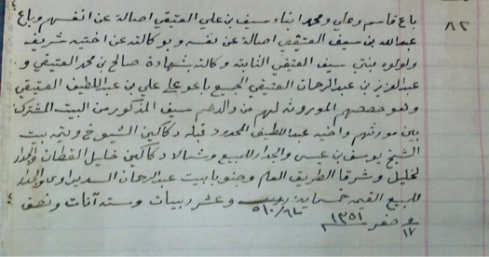 ٨٢
باع قاسم وعلي ومحمد ابناء سيف بن علي العتيقي اصالة عن انفسهم وباع
عبدالله بن سيف العتيقي اصالة عن نفسه وبوكالته عن اختيه شريفه
ولولوه بنتي سيف العتيقي الثابته وكالته بشهادة صالح بن محمد العتيقي و
عبدالعزيز بن عبدالرحمان العتيقي الجميع باعو على علي بن عبداللطيف العتيقي
وهو حصصهم الموروثه لهم من والدهم سيف المذكور من البيت المشترك
بين مورثهم واخيه عبداللطيف المحدود قبلة دكاكين الشيوخ وتمه بيت
الشيخ يوسف بن عيسى والجدار للمبيع وشمالا دكاكين خليل القطان والجدار
لخليل وشرقا الطريق العام وجنوبا بيت عبدالرحمان السديراوي والجدار
للمبيع القيمه خمسمايه وعشر ربيات وسته آنات ونصف
٥١٠/٦
١٧ صفر ١٣٥١